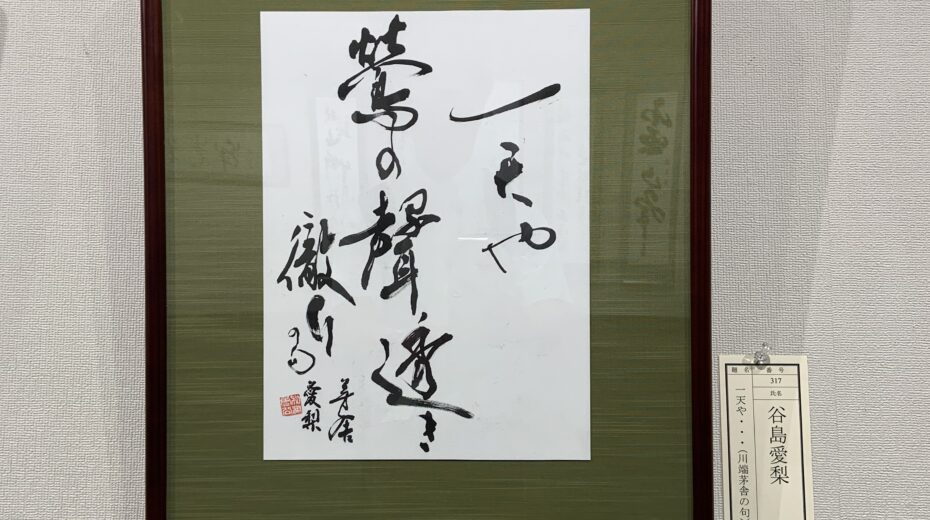 一天や
鶯の聲透き
徹り
茅舎
愛梨
番号
317
氏名
谷島愛梨
題名
一天や・・・(川端茅舎の句